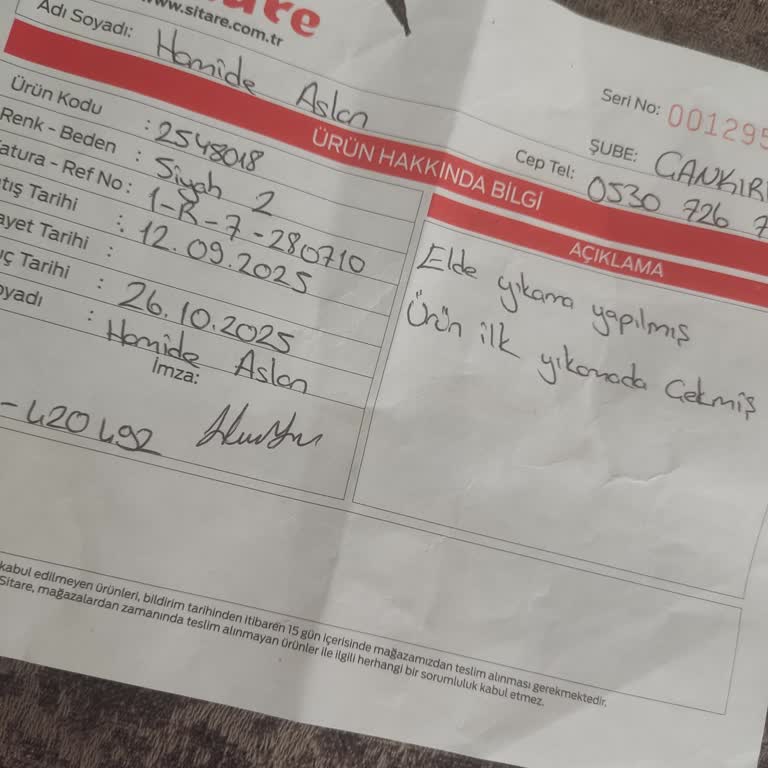 www.sitare.com.tr
Adı Soyadı: Hamide Aslan
Seri No: 001295
ŞUBE: ÇANKIRI
Cep Tel: 0530 726 7
ÜRÜN HAKKINDA BİLGİ
Ürün Kodu : 2548018
Renk - Beden : Siyah 2
Fatura - Ref No: 1-R-7-280710
tış Tarihi : 12.09.2025
ayet Tarihi :
ç Tarihi : 26.10.2025
oyadı : Hamide Aslan
İmza:
-420492
AÇIKLAMA
Elde yıkama yapılmış
Ürün ilk yıkamada Çekmiş
kabul edilmeyen ürünleri, bildirim tarihinden itibaren 15 gün içerisinde mağazamızdan teslim alınması gerekmektedir.
Sitare, mağazalardan zamanında teslim alınmayan ürünler ile ilgili herhangi bir sorumluluk kabul etmez.